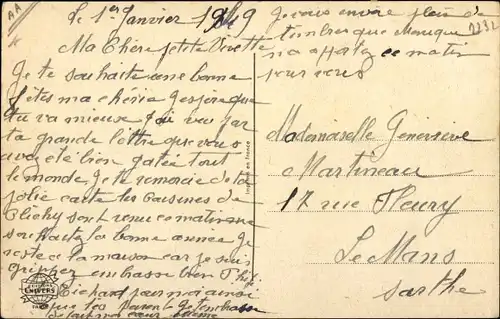 Le 1er Janvier 1949
Ma Chère petite Vivette
Je te souhaite une bonne
fêtes ma chérie J'espère que
tu va mieux J'ai vu par
ta grande lettre que vous
avez été bien gatée tout
le monde Je te remercie de ta
jolie carte les cousines de
Clichy sont venu ce matin me
souhaiter la bonne année Je
reste a la maison car je suis
grippée embrasse bien
Richard pour moi ainsi
que tes parents Je t'embrasse
de tout mon cœur
Je vous envoie plein de
timbres que Monique
m'a apporté ce matin
pour vous
Mademoiselle Geneviève
Martineau
17 rue Fleury
Le Mans
Sarthe
UNIVERS